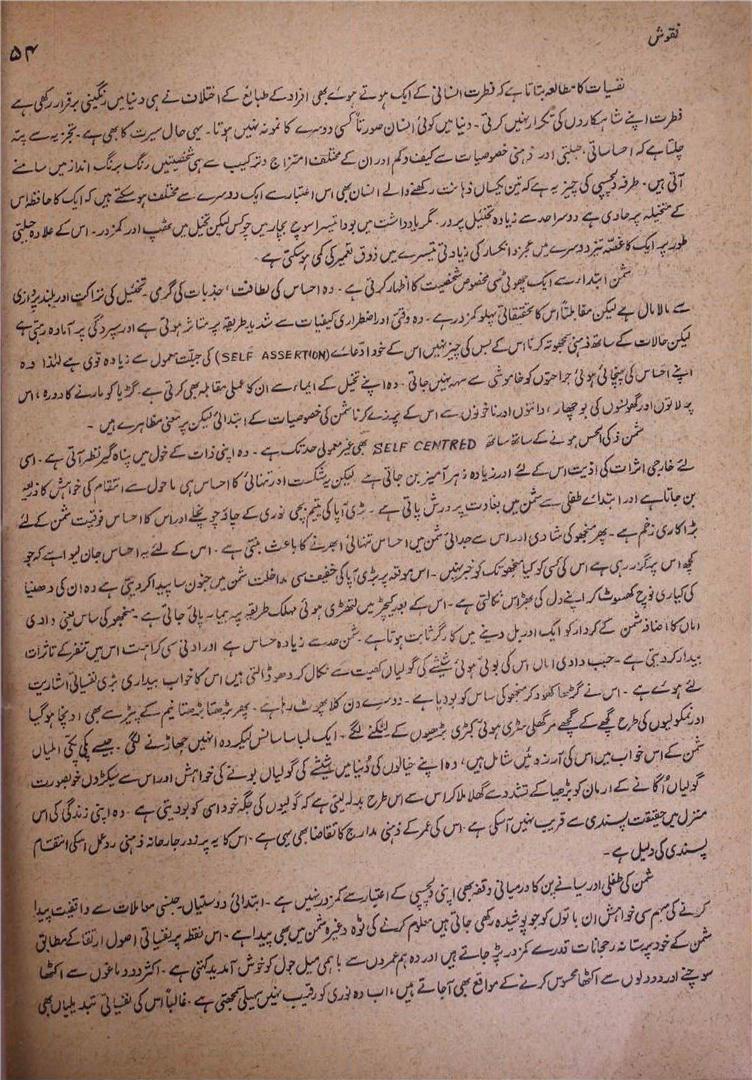 نقوش
۵۴
نفسیات کا مطالعہ بتاتا ہے کہ فطرت انسانی کے ایک ہوتے ہوئے بھی افراد کے طبائع کے اختلاف نے ہی دنیا میں رنگینی برقرار رکھی ہے
فطرت اپنے شاہکاروں کی تکرار نہیں کرتی ۔ دنیا میں کوئی انسان صورتاً کسی دوسرے کا نمونہ نہیں ہوتا ۔ یہی حال سیرت کا بھی ہے ۔ تجزیہ سے پتہ
چلتا ہے کہ احساساتی ، جبلتی اور ذہنی خصوصیات سے کیف وکم اور ان کے مختلف امتزاج و ترکیب سے ہی شخصیتیں رنگ برنگ انداز میں سامنے
آتی ہیں ۔ طرفہ دلچسپی کی چیز یہ ہے کہ تین یکساں ذہانت رکھنے والے انسان بھی اس اعتبار سے ایک دوسرے سے مختلف ہو سکتے ہیں کہ ایک کا حافظہ اس
کے متخیلہ پر حاوی ہے دوسرا حد سے زیادہ تخئیل پرور ۔ مگر یادداشت میں بودا تیسرا سوچ بچار میں چوکس لیکن تخیل میں عقب اور کمزور ۔ اس کے علاوہ جبلتی
طور پر ایک کا غصّہ تیز دوسرے میں عجز و انکسار کی زیادتی تیسرے میں ذوق تعمیر کی کمی ہو سکتی ہے ۔
شمن ابتدا ر سے ایک چھوٹی سی مخصوص شخصیت کا اظہار کرتی ہے ۔ وہ احساس کی لطافت ، جذبات کی گرمی ۔ تخئیل کی نزاکت اور بلند پردازی
سے مالا مال ہے لیکن مقابلتاً اس کا تحقیقاتی پہلو کمزور ہے ۔ وہ وقتی اور اضطراری کیفیات سے شدید طریقہ پر متاثر ہوتی ہے اور سپردگی پر آمادہ رہتی ہے
لیکن حالات کے ساتھ ذہنی سمجھوتہ کرنا اس کے بس کی چیز نہیں اس کے خود ادعائے (SELF ASSERTION) کی جبلت معمول سے زیادہ قوی ہے لہٰذا وہ
اپنے احساس کی پہنچائی ہوئی جراحتوں کو خاموشی سے سہہ نہیں جاتی ۔ وہ اپنے تخیل کے ایماء سے ان کا عملی مقابلہ بھی کرتی ہے ۔ گڑیا کو مارنے کا دورہ ، اس
پر لاتوں اور گھونسوں کی بوچھار ، دانتوں اور ناخونوں سے اس کے پرزے کرنا شمن کی خصوصیات کے ابتدائی لیکن پر معنی مظاہرے ہیں ۔
شمن ذکی الحس ہونے کے ساتھ ساتھ SELF CENTRED بھی غیر معمولی حد تک ہے ۔ وہ اپنی ذات کے خول میں پناہ گیر نظر آتی ہے ۔ اسی
لئے خارجی اثرات کی اذیت اس کے لئے اور زیادہ زہر آمیز بن جاتی ہے لیکن یہ شکست اور تنہائی کا احساس ہی ماحول سے انتقام کی خواہش کا ذریعہ
بن جاتا ہے اور ابتدائے طفلی سے شمن میں بغاوت پرورش پاتی ہے ۔ بڑی آپا کی یتیم بچی نوری کے جا و بیجا چونچلے اور اس کا احساس فوقیت شمن کے لئے
بڑا کاری زخم ہے ۔ پھر منجھو کی شادی اور اس سے جدائی شمن میں احساس تنہائی ابھرنے کا باعث بنتی ہے ۔ اس کے لئے یہ احساس جان لیوا ہے کہ جو
کچھ اس پر گزر رہی ہے اس کی کسی کو کیا منجھو تک کو خبر نہیں ۔ اس موقعہ پر بڑی آپا کی خفیف سی مداخلت شمن میں جنون سا پیدا کر دیتی ہے وہ ان کی دھنیا
کی کیاری نوچ کھسوٹ کر اپنے دل کی بھڑاس نکالتی ہے ۔ اس کے بعد کیچڑ میں لتھڑی ہوئی مہلک طریقہ پر بیمار پائی جاتی ہے ۔ منجھو کی ساس یعنی دادی
اماں کا اضافہ شمن کے کردار کو ایک اور بل دینے میں کارگر ثابت ہوتا ہے ۔ شمن حد سے زیادہ حساس ہے اور ادنیٰ سی کراہت اس میں تنفر کے تاثرات
بیدار کر دیتی ہے ۔ جب دادی اماں اس کی بوئی ہوئی شیشے کی گولیاں کھیت سے نکال کر دھو ڈالتی ہیں اس کا خواب بیداری بڑی نفسیاتی اشاریت
لئے ہوئے ہے ۔ اس نے گڑھا کھود کر منجھو کی ساس کو بو دیا ہے ۔ دوسرے دن کلا پھوٹ رہا ہے ۔ پھر بڑھتا بڑھتا نیم کے پیڑ سے بھی اونچا ہو گیا
اور نمکولیوں کی طرح گچھے کے گچھے مرگھلی سڑی ہوئی کبڑی بڑھیوں کے لٹکنے لگے ۔ ایک لمبا سا بانس لیکر وہ انہیں جھاڑنے لگی ۔ جیسے پکی پکی املیاں
شمن کے اس خواب میں اس کی آرزوئیں شامل ہیں ، وہ اپنے خیالوں کی دُنیا میں شیشے کی گولیاں بونے کی خواہش اور اس سے سیکڑوں خوبصورت
گولیاں اُگانے کے ارمان کو بڑھیا کے تشدد سے گھلا ملا کر اس سے اس طرح بدلہ لیتی ہے کہ گولیوں کی جگہ خود اسی کو بو دیتی ہے ۔ وہ اپنی زندگی کی اس
منزل میں حقیقت پسندی سے قریب نہیں آ سکی ہے ۔ اس کی عمر کے ذہنی مدارج کا تقاضا بھی یہی ہے ۔ اس کا یہ پر زور جارحانہ ذہنی رد عمل اسکی انتقام
پسندی کی دلیل ہے ۔
شمن کی طفلی اور سیانے پن کا درمیانی وقفہ بھی اپنی دلچسپی کے اعتبار سے کمزور نہیں ہے ۔ ابتدائی دوستیاں جنسی معاملات سے واقفیت پیدا
کرنے کی مبہم سی خواہش ان باتوں کو جو پوشیدہ رکھی جاتی ہیں معلوم کرنے کی ٹوہ وغیرہ شمن میں بھی پیدا ہے ۔ اس نقطہ پر نفسیاتی اصول ارتقا کے مطابق
شمن کے خود پرستانہ رجحانات قدرے کمزور پڑ جاتے ہیں اور وہ ہم عمروں سے باہمی میل جول کو خوش آمدید کہتی ہے ۔ اکثر دو دماغوں سے اکٹھا
سوچنے اور دو دلوں سے اکٹھا محسوس کرنے کے مواقع بھی آ جاتے ہیں ، اب وہ نوری کو رقیب نہیں سہیلی سمجھتی ہے ۔ غالباً اس کی نفسیاتی تبدیلیاں بھی